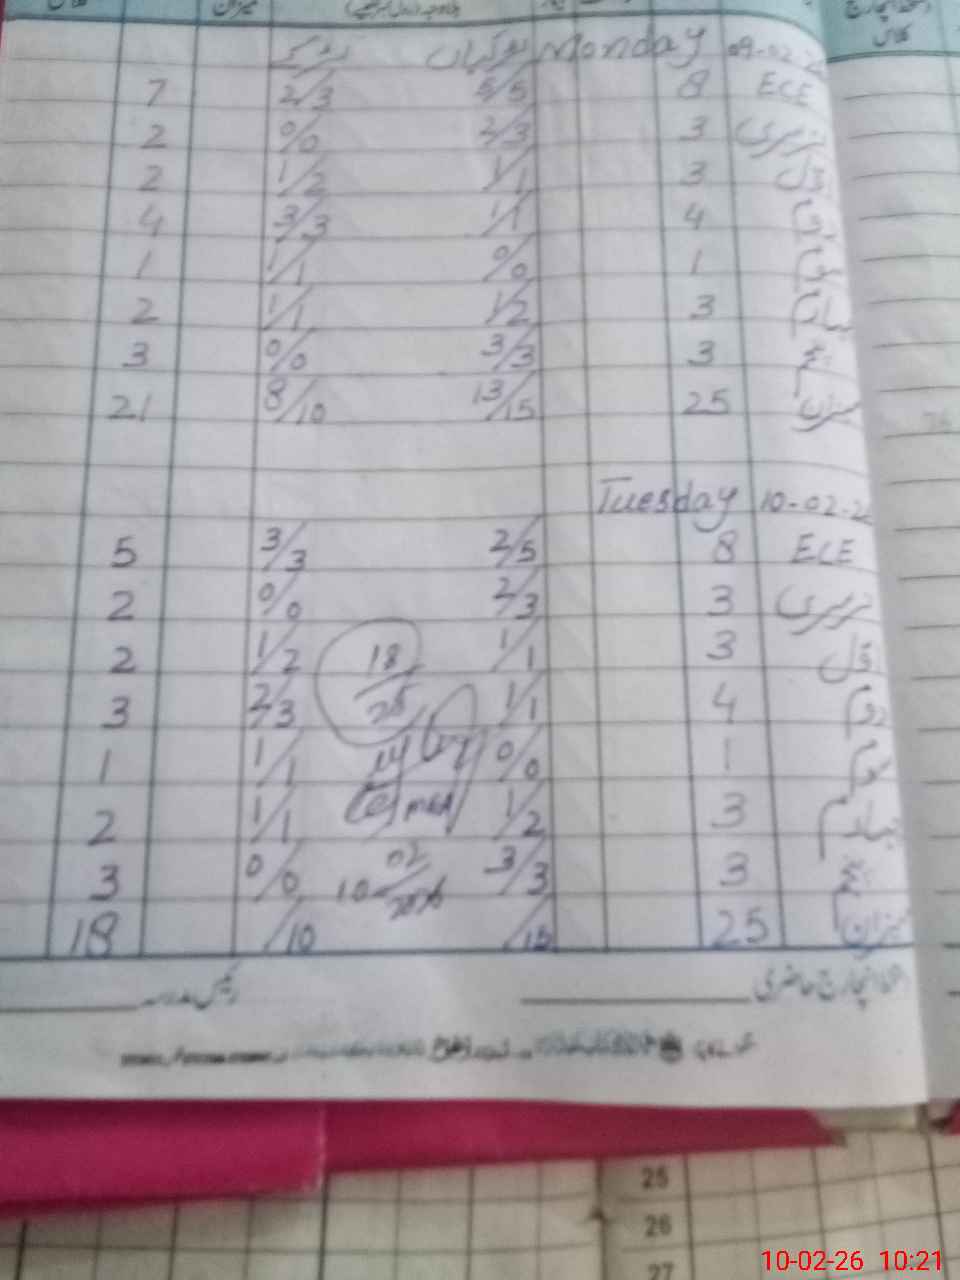 میزان
لڑکے لڑکیاں Monday 09-02-2
7 2/3 5/5 8 ECE
2 0/0 2/3 3 نرسری
2 1/2 1/1 3 اوّل
4 3/3 1/1 4 دوم
1 1/1 0/0 1 سوم
2 1/1 1/2 3 چہارم
3 0/0 3/3 3 پنجم
21 8/10 13/15 25 میزان
Tuesday 10-02-2
5 3/3 2/5 8 ECE
2 0/0 2/3 3 نرسری
2 1/2 18/25 1/1 3 اوّل
3 2/3 1/1 4 دوم
1 1/1 0/0 1 سوم
2 1/1 1/2 3 چہارم
3 0/0 10 02/2026 3/3 3 پنجم
18 /10 /15 25 میزان
انچارج حاضری
25
26
27
10-02-26 10:21